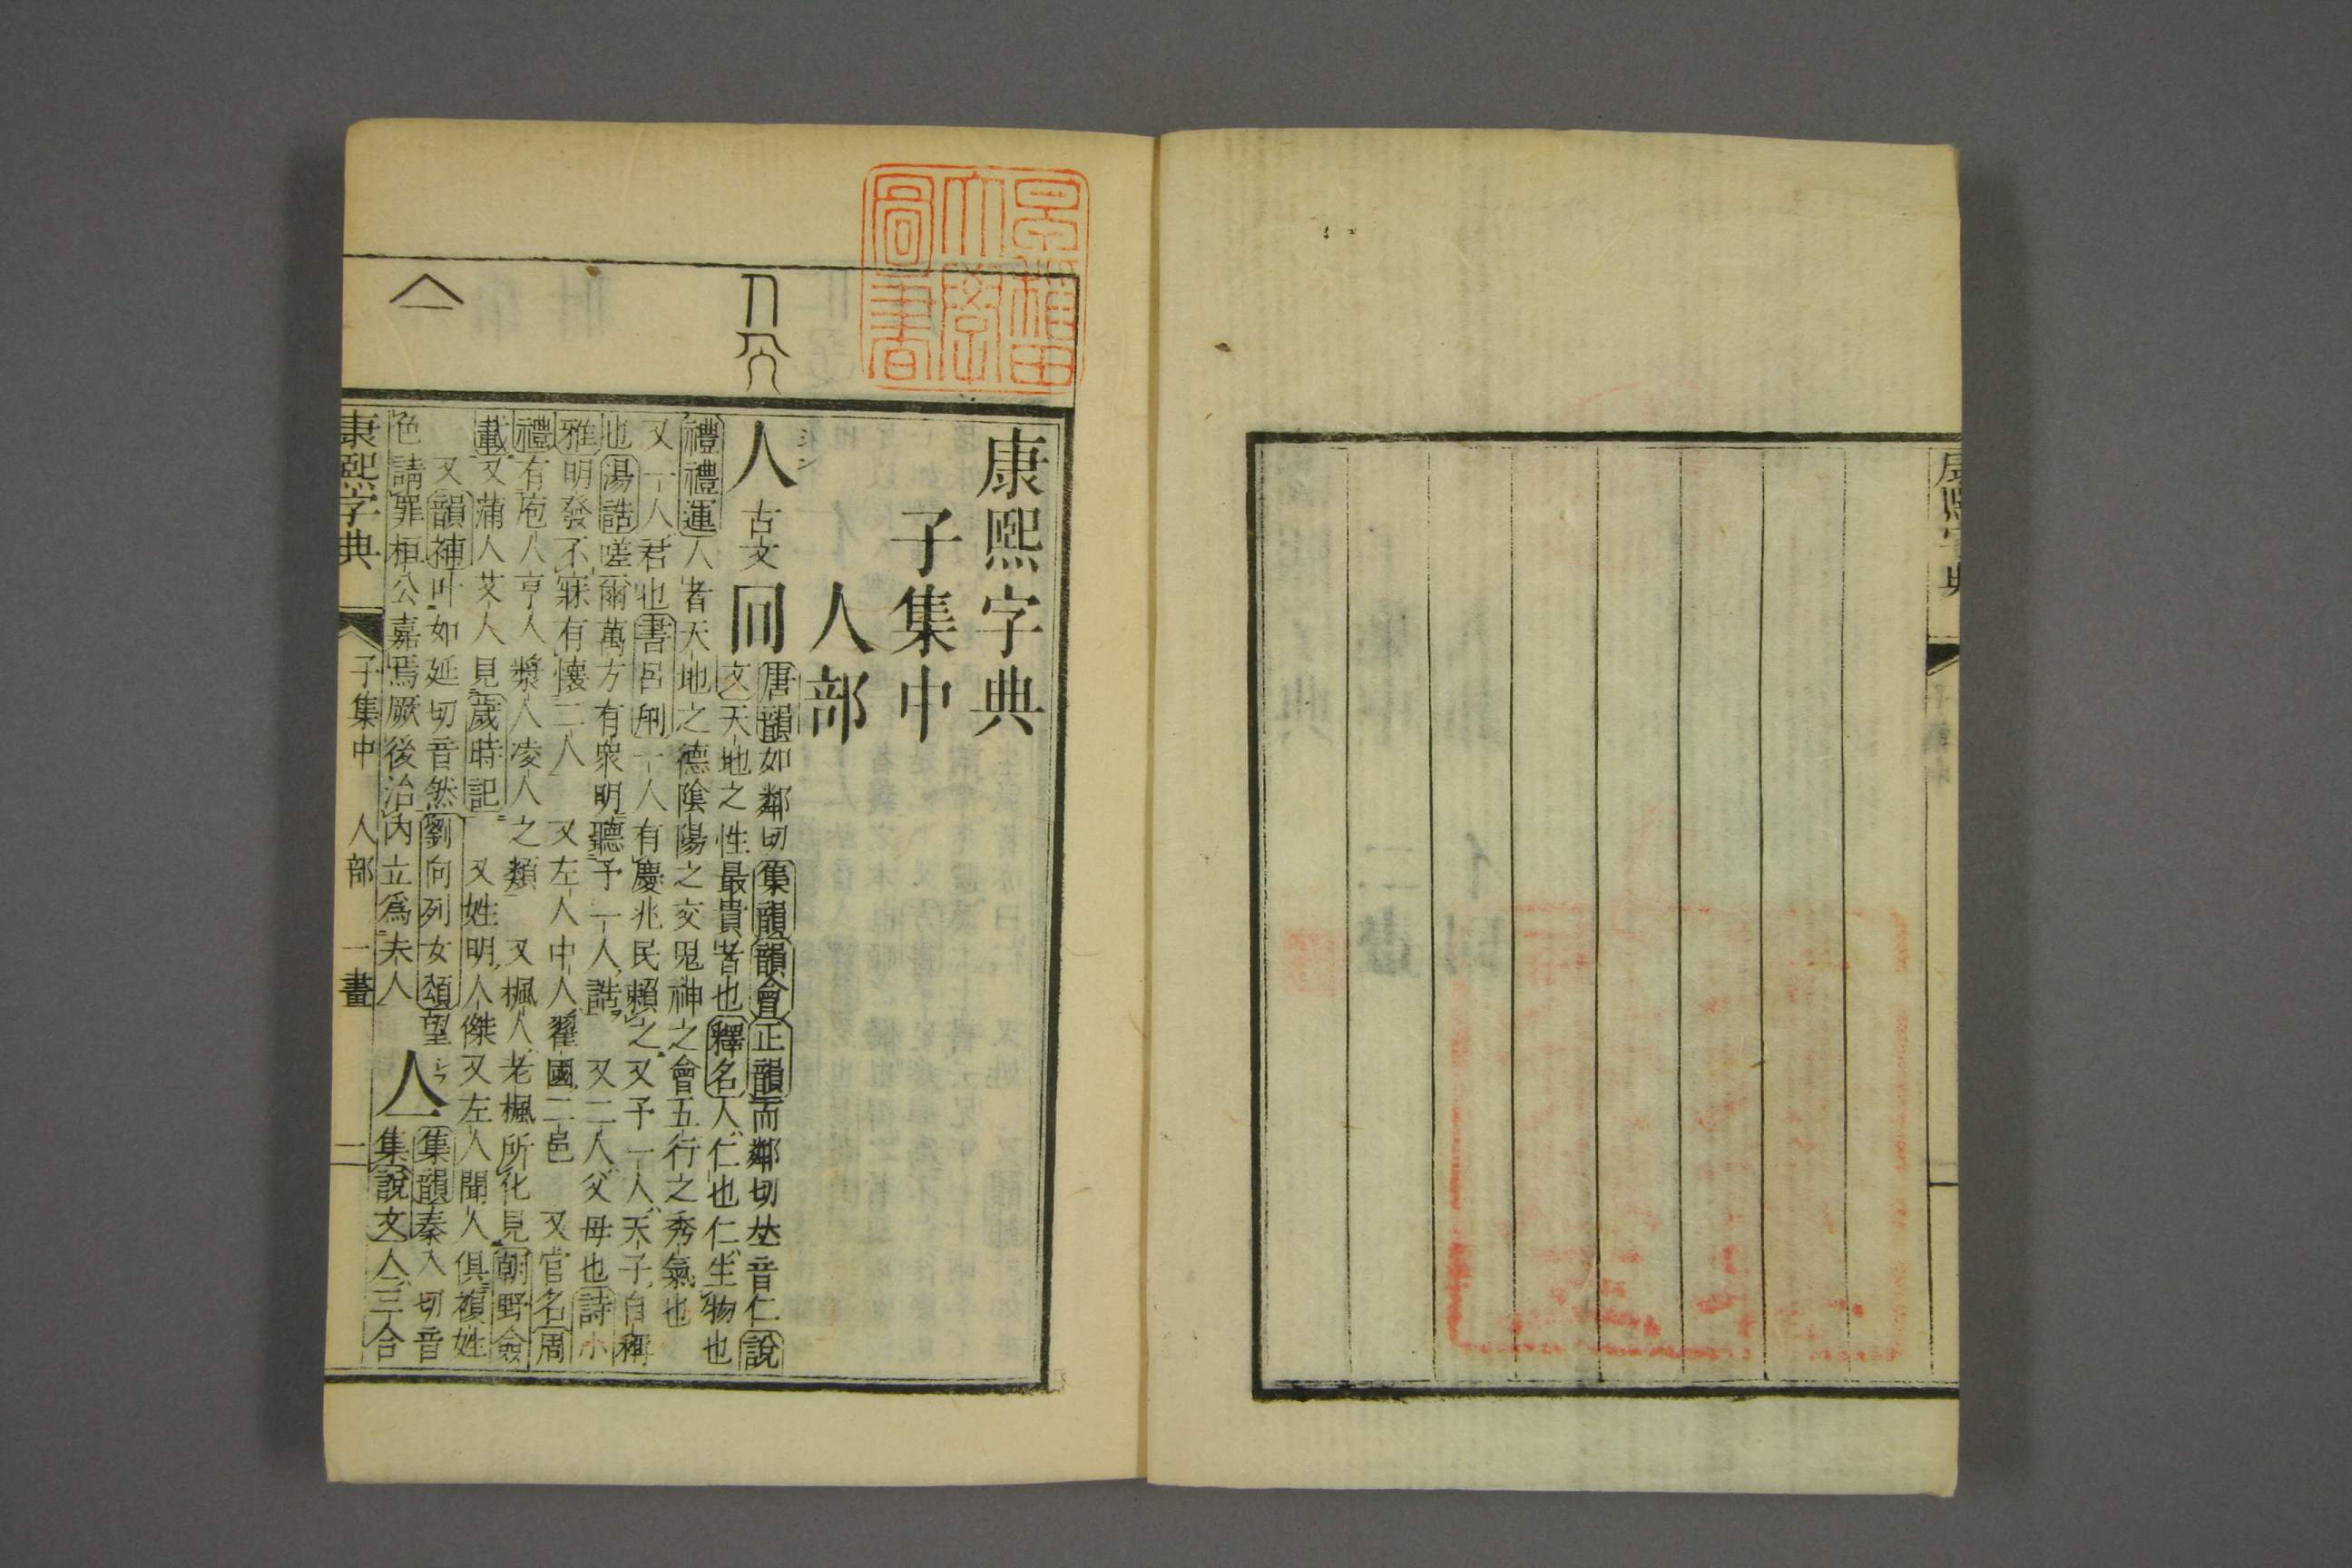 早稻田
大學
圖書
康熙字典
子集中
人部
人 古文
ジン
唐韻如鄰切集韻韻會正韻而鄰切𠀤音仁說
文天地之性最貴者也釋名人仁也仁生物也
禮禮運人者天地之德陰陽之交鬼神之會五行之秀氣也
又一人君也書呂刑一人有慶兆民賴之又予一人天子自稱
也湯誥嗟爾萬方有衆明聽予一人誥 又二人父母也詩小
雅明發不寐有懷二人 又左人中人翟國二邑 又官名周
禮有庖人亨人漿人凌人之類 又楓人老楓所化見朝野僉
載又蒲人艾人見歲時記 又姓明人傑又左人聞人俱複姓
又韻補叶如延切音然劉向列女頌望
色請罪桓公嘉焉厥後治內立爲夫人
亼
集韻秦入切音
集說文亼三合
康熙字典 子集中 人部 一畫